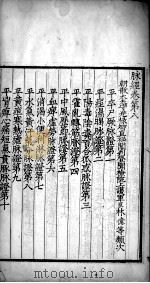 脉經卷第八
朝散大夫守光祿卿直祕閣判登聞檢院上護軍臣林億等類次
平卒尸厥脉證第一
平痙濕暍脉證第二
平陽毒陰毒百合狐惑脉證第三
平霍亂轉筋脉證第四
平中風歷節脉證第五
平血痹虛勞脉證第六
平消渴小便利淋脉證第七
平水氣黃汗氣分脉證第八
平黃疸寒熱瘧脉證第九
平胷痹心痛短氣賁豚脉證第十